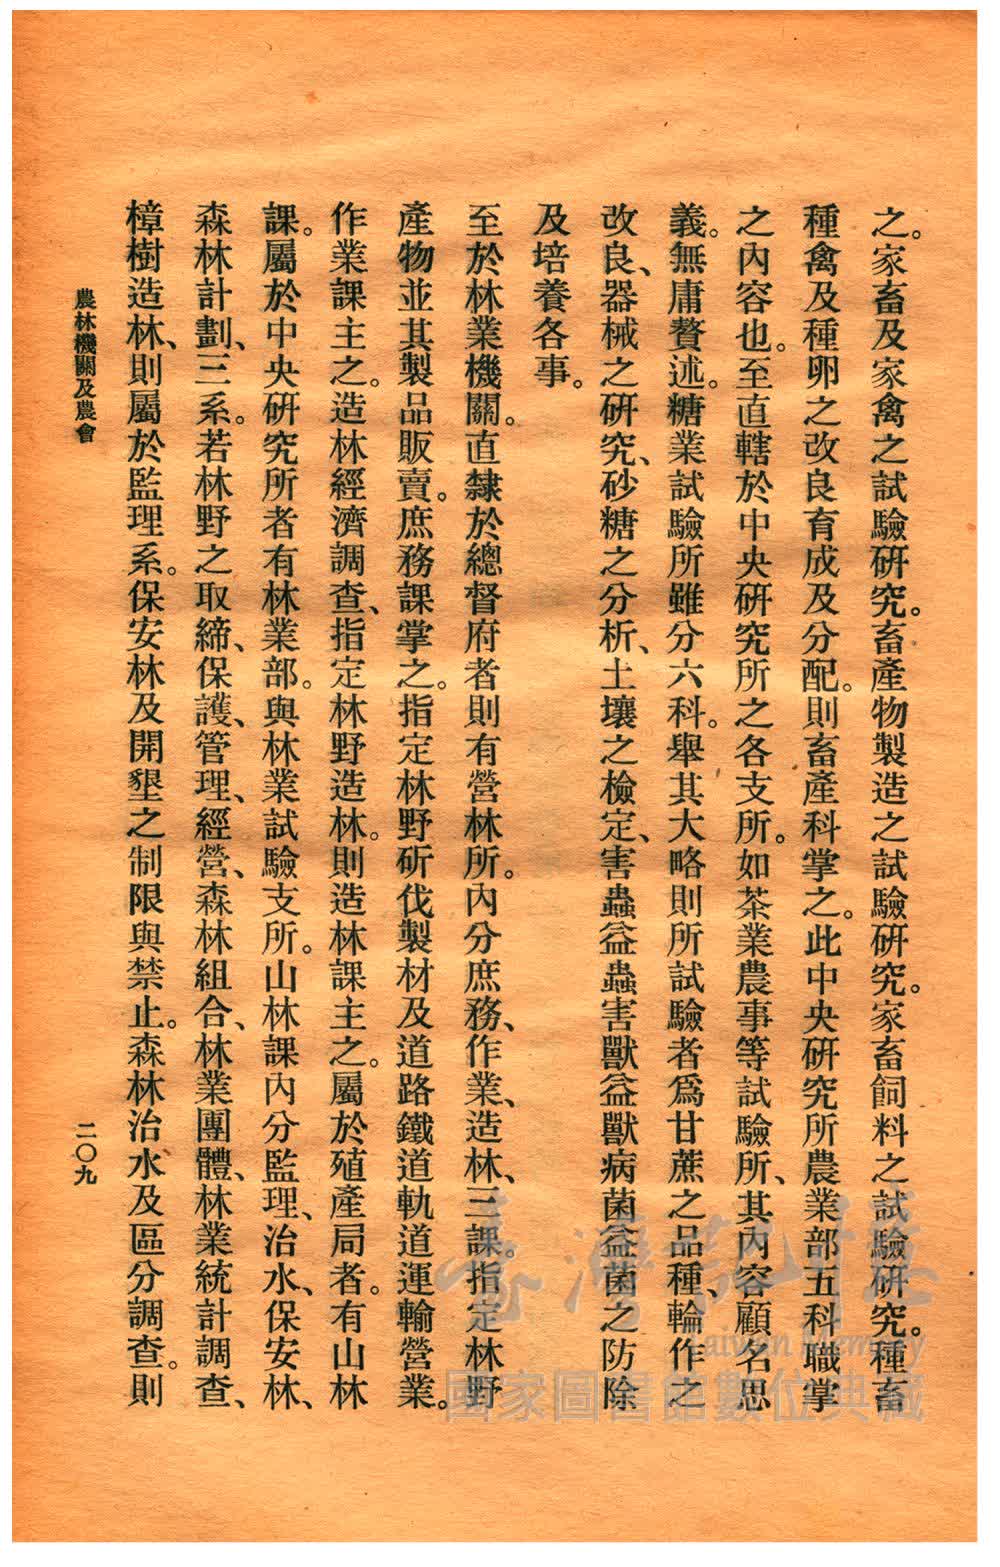 之。家畜及家禽之試驗研究。畜產物製造之試驗研究。家畜飼料之試驗研究。種畜
種禽及種卵之改良育成及分配。則畜產科掌之。此中央研究所農業部五科職掌
之內容也。至直轄於中央研究所之各支所。如茶業農事等試驗所、其內容顧名思
義。無庸贅述。糖業試驗所雖分六科。舉其大略則所試驗者爲甘蔗之品種、輪作之
改良、器械之研究、砂糖之分析、土壤之檢定、害蟲益蟲害獸益獸病菌益菌之防除
及培養各事。
至於林業機關。直隸於總督府者則有營林所。內分庶務、作業、造林、三課。指定林野
產物並其製品販賣。庶務課掌之。指定林野斫伐製材及道路鐵道軌道運輸營業。
作業課主之。造林經濟調查、指定林野造林。則造林課主之。屬於殖產局者。有山林
課。屬於中央研究所者有林業部。與林業試驗支所。山林課內分監理、治水、保安林、
森林計劃、三系。若林野之取締、保護、管理、經營、森林組合、林業團體、林業統計調查、
樟樹造林、則屬於監理系。保安林及開墾之制限與禁止。森林治水及區分調查。則
農林機關及農會
二〇九
臺灣記憶
Taiwan Memory
國家圖書館數位典藏